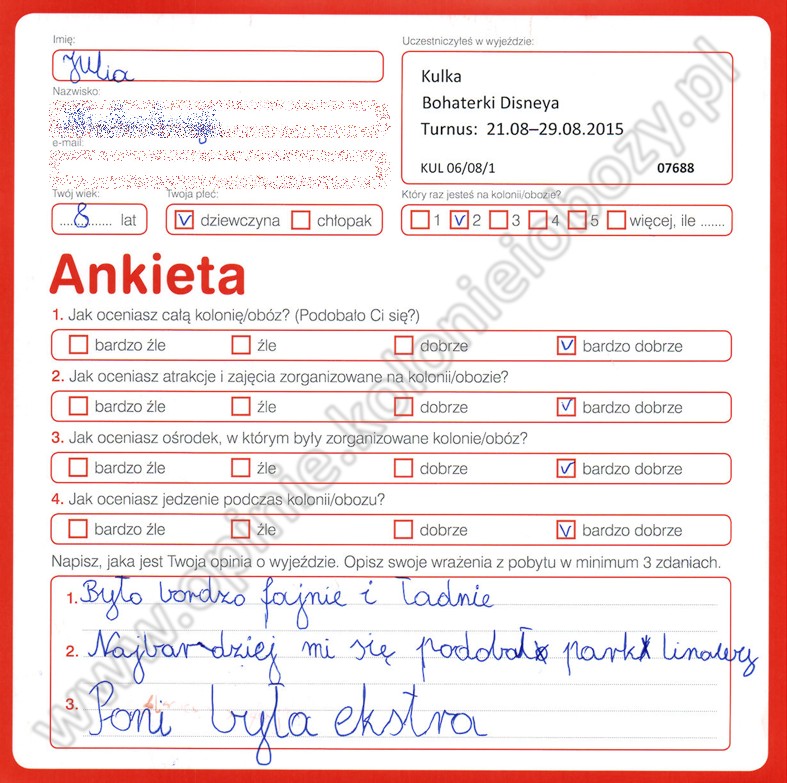 Imię:
Julia
Uczestniczyłeś w wyjeździe:
Kulka
Bohaterki Disneya
Turnus: 21.08–29.08.2015
KUL 06/08/1 07688
Nazwisko:
e-mail:
Twój wiek:
8 lat
Twoja płeć:
dziewczyna chłopak
Który raz jesteś na kolonii/obozie?
1 2 3 4 5 więcej, ile .......
Ankieta
1. Jak oceniasz całą kolonię/obóz? (Podobało Ci się?)
bardzo źle źle dobrze bardzo dobrze
2. Jak oceniasz atrakcje i zajęcia zorganizowane na kolonii/obozie?
bardzo źle źle dobrze bardzo dobrze
3. Jak oceniasz ośrodek, w którym były zorganizowane kolonie/obóz?
bardzo źle źle dobrze bardzo dobrze
4. Jak oceniasz jedzenie podczas kolonii/obozu?
bardzo źle źle dobrze bardzo dobrze
Napisz, jaka jest Twoja opinia o wyjeździe. Opisz swoje wrażenia z pobytu w minimum 3 zdaniach.
1. Było bardzo fajnie i ładnie
2. Najbardziej mi się podobał park linowy
3. Pani była ekstra
www.opinie.kolonieiobozy.pl